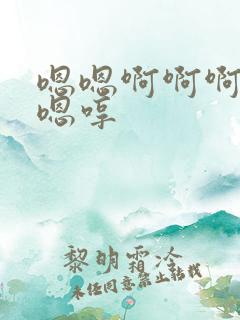 嗯嗯啊啊啊
嗯哼
黎明霜冷
未经同意禁止转载